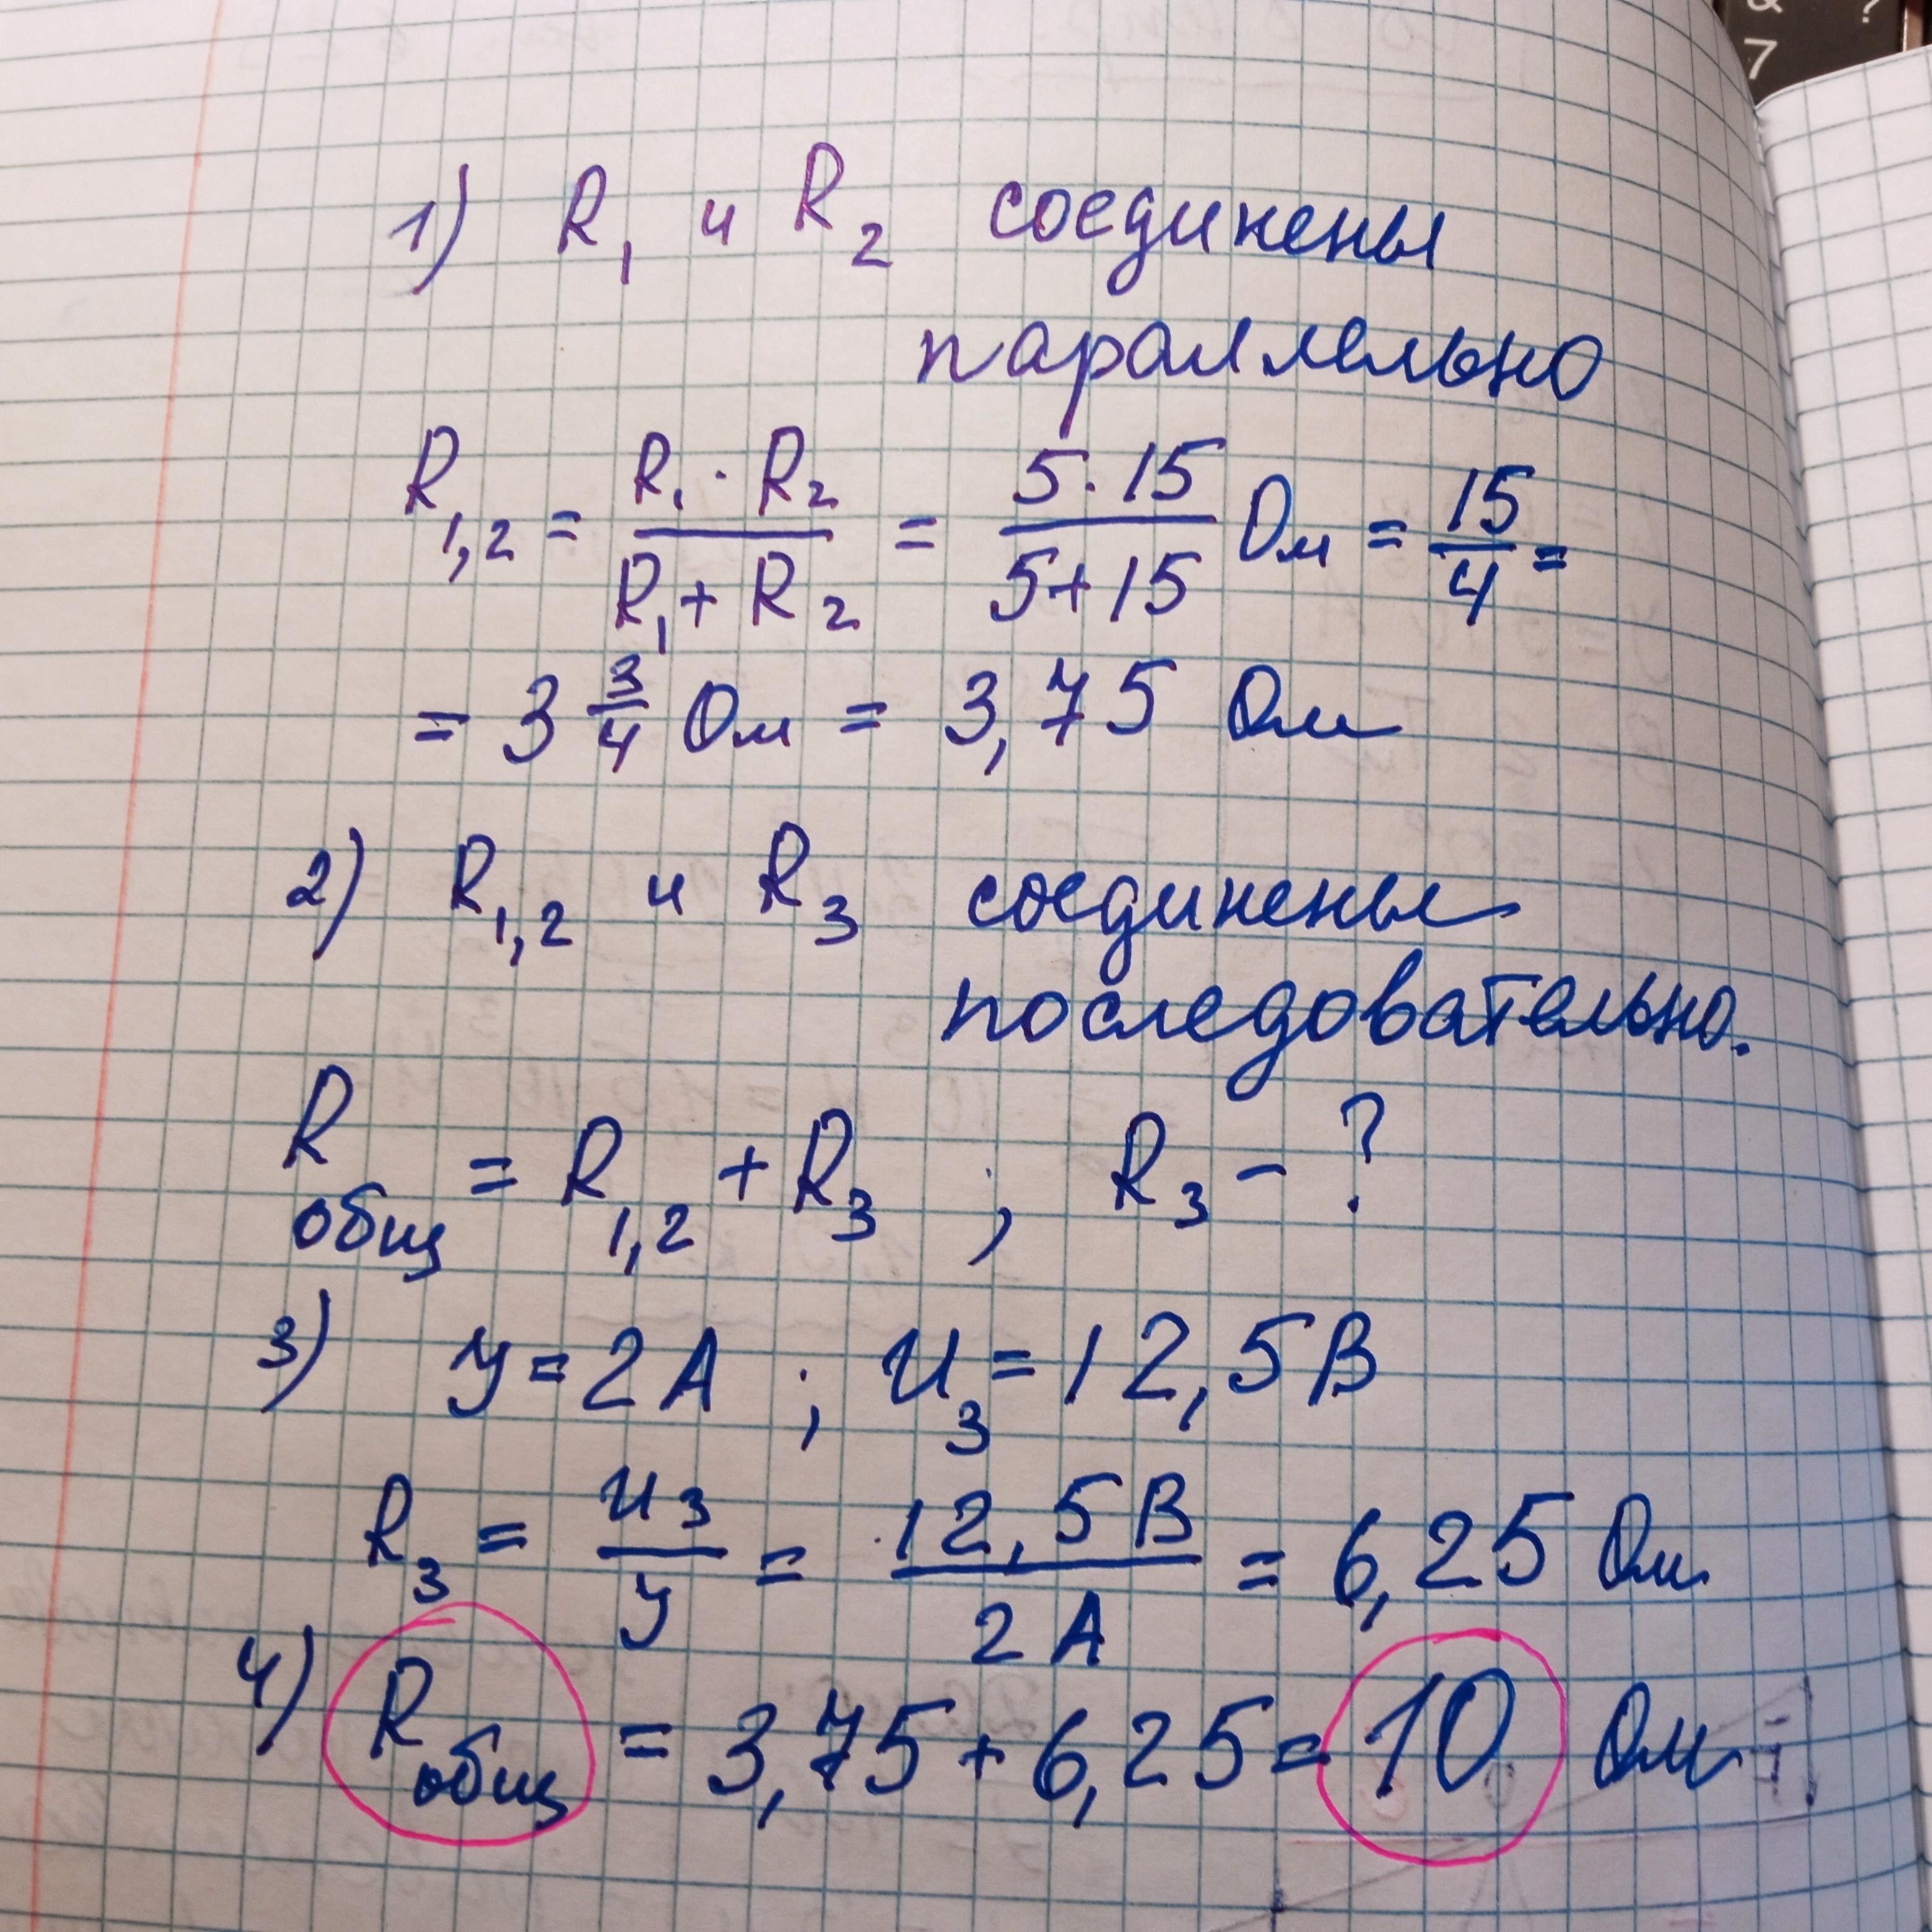 1) R₁ и R₂ соединены
параллельно
R₁,₂ = (R₁ · R₂)/(R₁ + R₂) = (5 · 15)/(5 + 15) Ом = 15/4 =
= 3 3/4 Ом = 3,75 Ом
2) R₁,₂ и R₃ соединены
последовательно.
R общ = R₁,₂ + R₃ ; R₃ - ?
3) У = 2 А ; U₃ = 12,5 В
R₃ = U₃/У = 12,5 В/2 А = 6,25 Ом
4) R общ = 3,75 + 6,25 = 10 Ом
7
?
&